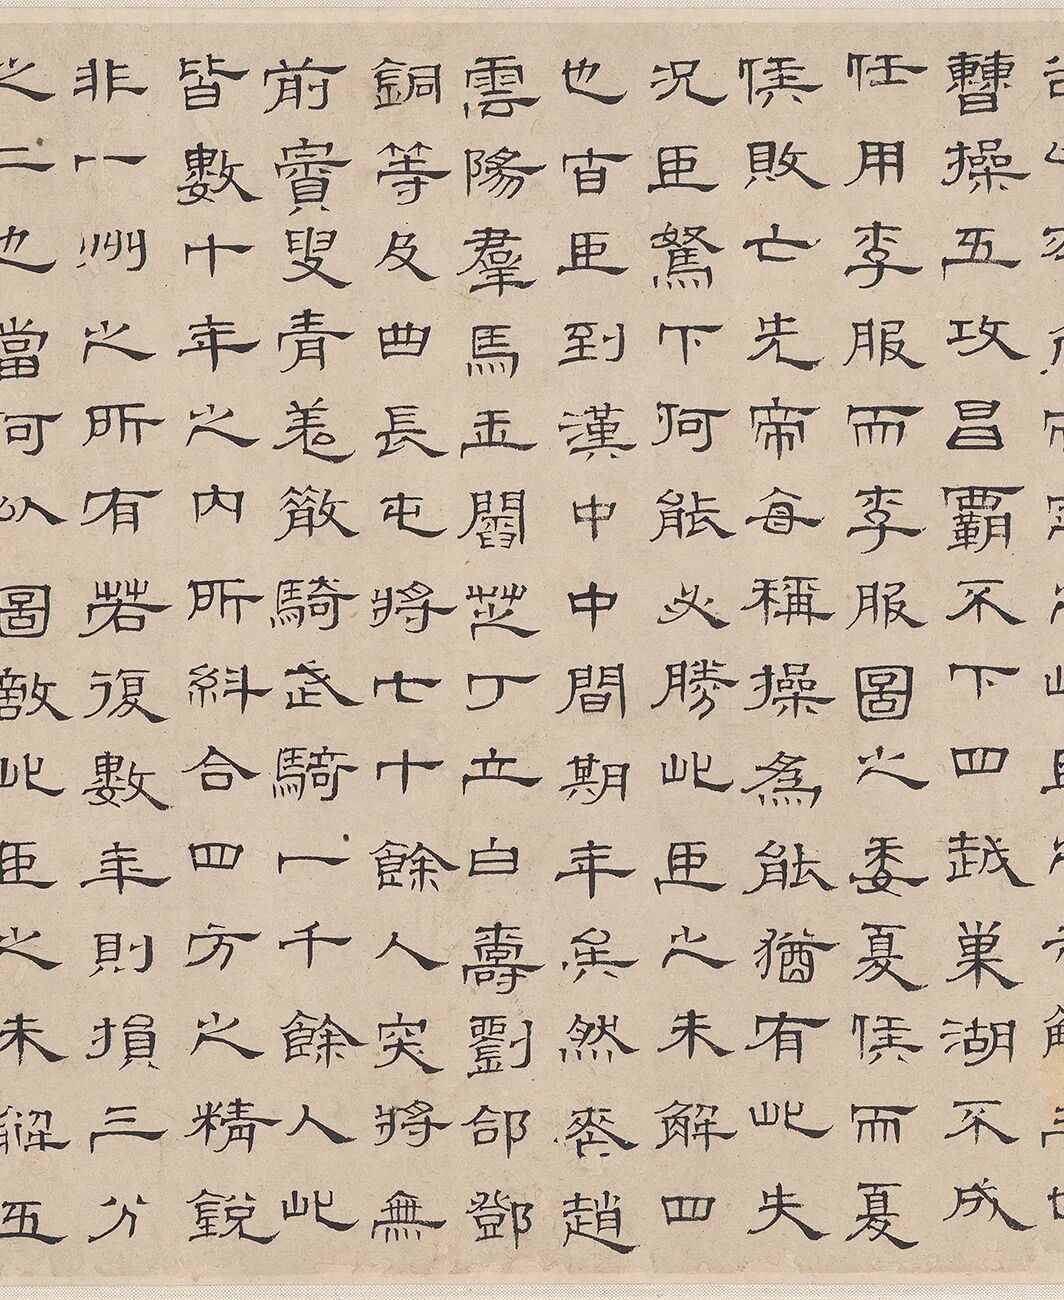 曹操五攻昌霸不下四越巢湖不成
任用李服而李服圖之委夏侯而夏
侯敗亡先帝每稱操爲能猶有此失
況臣駑下何能必勝此臣之未解四
也自臣到漢中中間期年矣然喪趙
雲陽羣馬玉閻芝丁立白壽劉郃鄧
銅等及曲長屯將七十餘人突將無
前賨叟青羌散騎武騎一千餘人此
皆數十年之內所糾合四方之精銳
非一州之所有若復數年則損三分
之二也當何以圖敵此臣之未解五